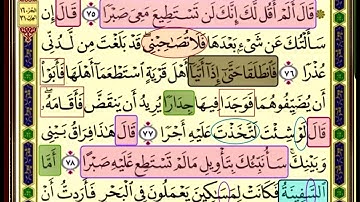 قَالَ أَلَمْ أَقُل لَّكَ إِنَّكَ لَن تَسْتَطِيعَ مَعِيَ صَبْرًا ٧٥ قَالَ إِن
سَأَلْتُكَ عَن شَيْءٍ بَعْدَهَا فَلَا تُصَاحِبْنِي قَدْ بَلَغْتَ مِن لَّدُنِّي
عُذْرًا ٧٦ فَانطَلَقَا حَتَّىٰ إِذَا أَتَيَا أَهْلَ قَرْيَةٍ اسْتَطْعَمَا أَهْلَهَا فَأَبَوْا
أَن يُضَيِّفُوهُمَا فَوَجَدَا فِيهَا جِدَارًا يُرِيدُ أَن يَنقَضَّ فَأَقَامَهُ
قَالَ لَوْ شِئْتَ لَتَّخَذْتَ عَلَيْهِ أَجْرًا ٧٧ قَالَ هَٰذَا فِرَاقُ بَيْنِي
وَبَيْنِكَ سَأُنَبِّئُكَ بِتَأْوِيلِ مَا لَمْ تَسْتَطِع عَّلَيْهِ صَبْرًا ٧٨ أَمَّا
السَّفِينَةُ فَكَانَتْ لِمَسَٰكِينَ يَعْمَلُونَ فِي الْبَحْرِ فَأَرَدتُّ أَنْ